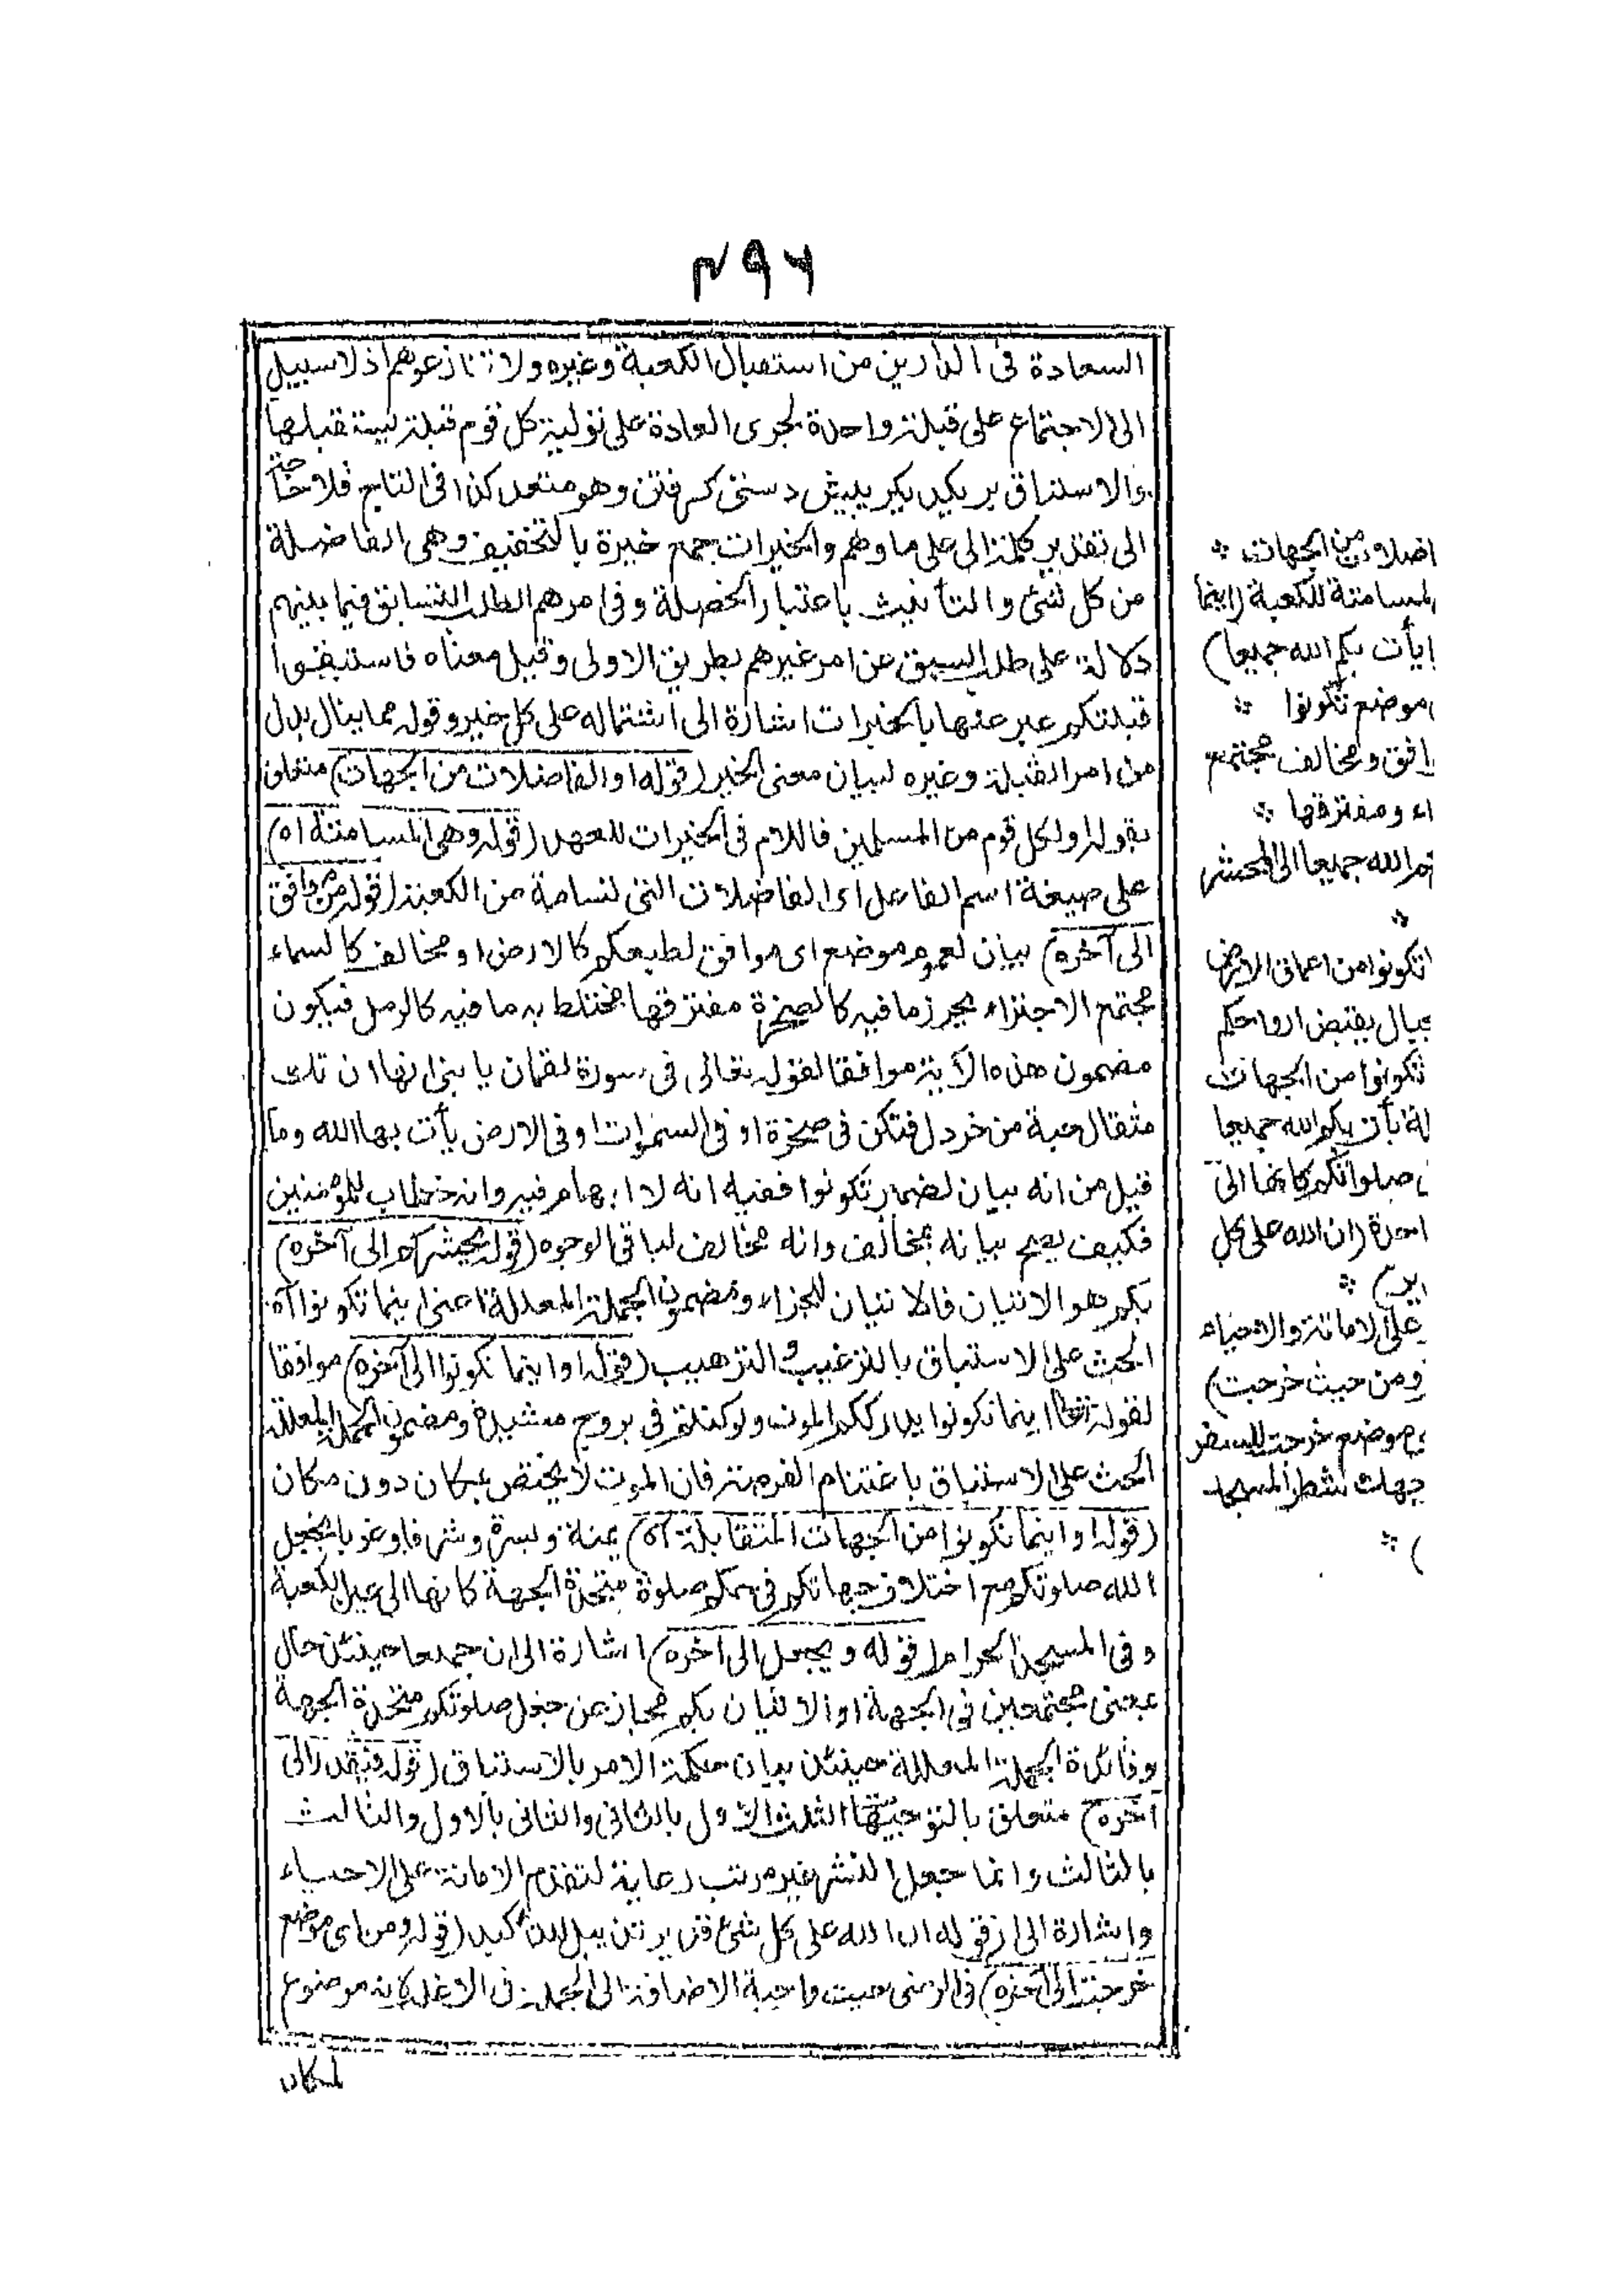 ٤٩٦
السعادة فى الدارين من استقبال الكعبة وغيره ولا تنازعوهم اذ لا سبيل
الى الاجتماع على قبلة واحدة لجرى العادة على تولية كل قوم قبلة يستقبلها
والاستباق بر يكديكر پيش دستى كرفتن وهو متعد كذا فى التاج فلا حاجة
الى تقدير كلمة الى على ما وهم والخيرات جمع خيرة بالتخفيف وهى الفاضلة
من كل شئ والتأنيث باعتبار الخصلة وفى امرهم بطلب التسابق فيما بينهم
دلالة على طلب السبق من امر غيرهم بطريق الاولى وقيل معناه فاستبقوا
قبلتكم عبر عنها بالخيرات اشارة الى اشتماله على كل خير وقوله مما ينال بدل
من امر القبلة وغيره لبيان معنى الخير (قوله او الفاضلات من الجهات) متعلق
بقوله او لكل قوم من المسلمين فاللام فى الخيرات للعهد (قوله وهى المسامتة اه)
على صيغة اسم الفاعل اى الفاضلات التى لسامتة من الكعبة (قوله من موافق
الى آخره) بيان لعموم موضع اى موافق لطبعكم كالارض او مخالف كالسماء
مجتمع الاجزاء يحرز ما فيه كالصخرة مفترقها يختلط به ما فيه كالرمل فيكون
مضمون هذه الآية موافقا لقوله تعالى فى سورة لقمان يا بنى انها ان تك
مثقال حبة من خردل فتكن فى صخرة او فى السموات او فى الارض يأت بها الله وما
قيل من انه بيان لضمير تكونوا ففيه انه لا ابهام فيه وانه خطاب للمؤمنين
فكيف يصح بيانه بمخالف وانه مخالف لباقى الوجوه (قوله يحشركم الى آخره)
بكم هو الاتيان فالاتيان للجزاء ومضمون الجملة المعللة اعنى اينما تكونوا آه
الحث على الاستباق بالترغيب والترهيب (قوله او اينما تكونوا الى آخره) موافقا
لقوله تعالى اينما تكونوا يدرككم الموت ولو كنتم فى بروج مشيدة ومضمون الجملة المعللة
الحث على الاستباق باغتنام الفرصة فان الموت لا يختص بمكان دون مكان
(قوله او اينما تكونوا من الجهات المتقابلة آه) يمنة ويسرة وشرقا وغربا يجعل
الله صلوتكم مع اختلاف جهاتكم فى حكم صلوة متحدة الجهة كانها الى عين الكعبة
وفى المسجد الحرام (قوله ويجعل الى آخره) اشارة الى ان جميعا حينئذ حال
بمعنى مجتمعين فى الجهة او الاتيان بكم مجاز عن جعل صلوتكم متحدة الجهة
وفائدة الجملة المعللة حينئذ بيان حكمة الامر بالاستباق (قوله فيقدر الى
آخره) متعلق بالتوجيهات الثلث الاول بالثانى والثانى بالاول والثالث
بالثالث وانما جعل النشر غير مرتب رعاية لتقدم الاماتة على الاحياء
واشارة الى ان قوله ان الله على كل شئ قدير تذييل للتأكيد (قوله ومن اى موضع
خرجت الى آخره) فى الرضى حيث واجبة الاضافة الى الجملة فى الاغلب كانه موضوع
لمكان
اضلات من الجهات
لمسامتة للكعبة (اينما
يأت بكم الله جميعا)
موضع تكونوا
افق ومخالف مجتمع
اء ومفترقها
كم الله جميعا الى المحشر
تكونوا من اعماق الارض
جبال يقبض ارواحكم
تكونوا من الجهات
لة يأت بكم الله جميعا
صلواتكم كانها الى
احدة (ان الله على كل
ير)
على الاماتة والاحياء
ومن حيث خرجت)
موضع خرجت للسفر
جهك شطر المسجد
)